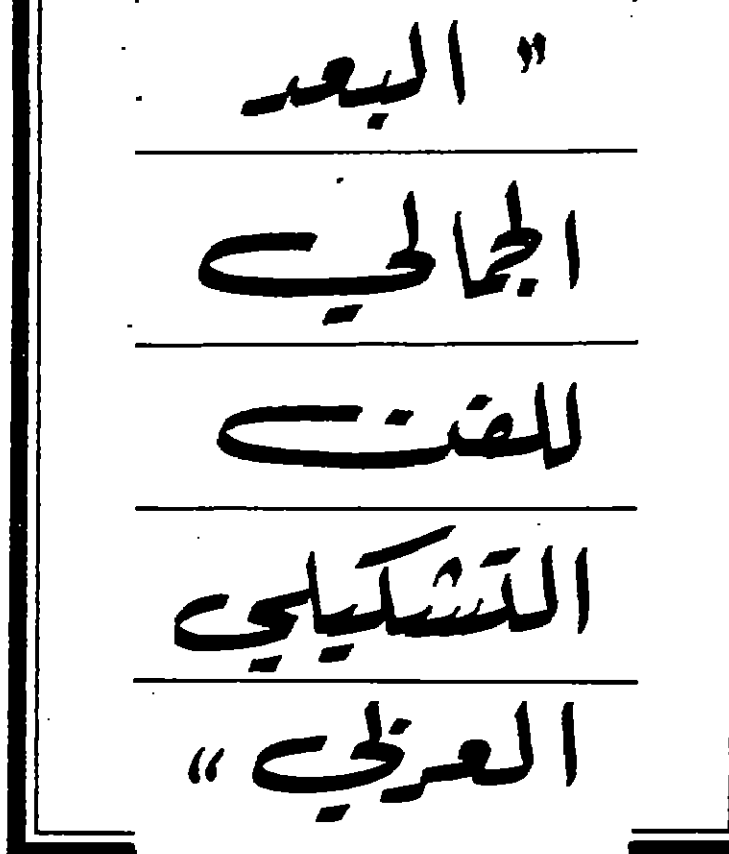 " البعد
الجمالي
للفن
التشكيلي
"